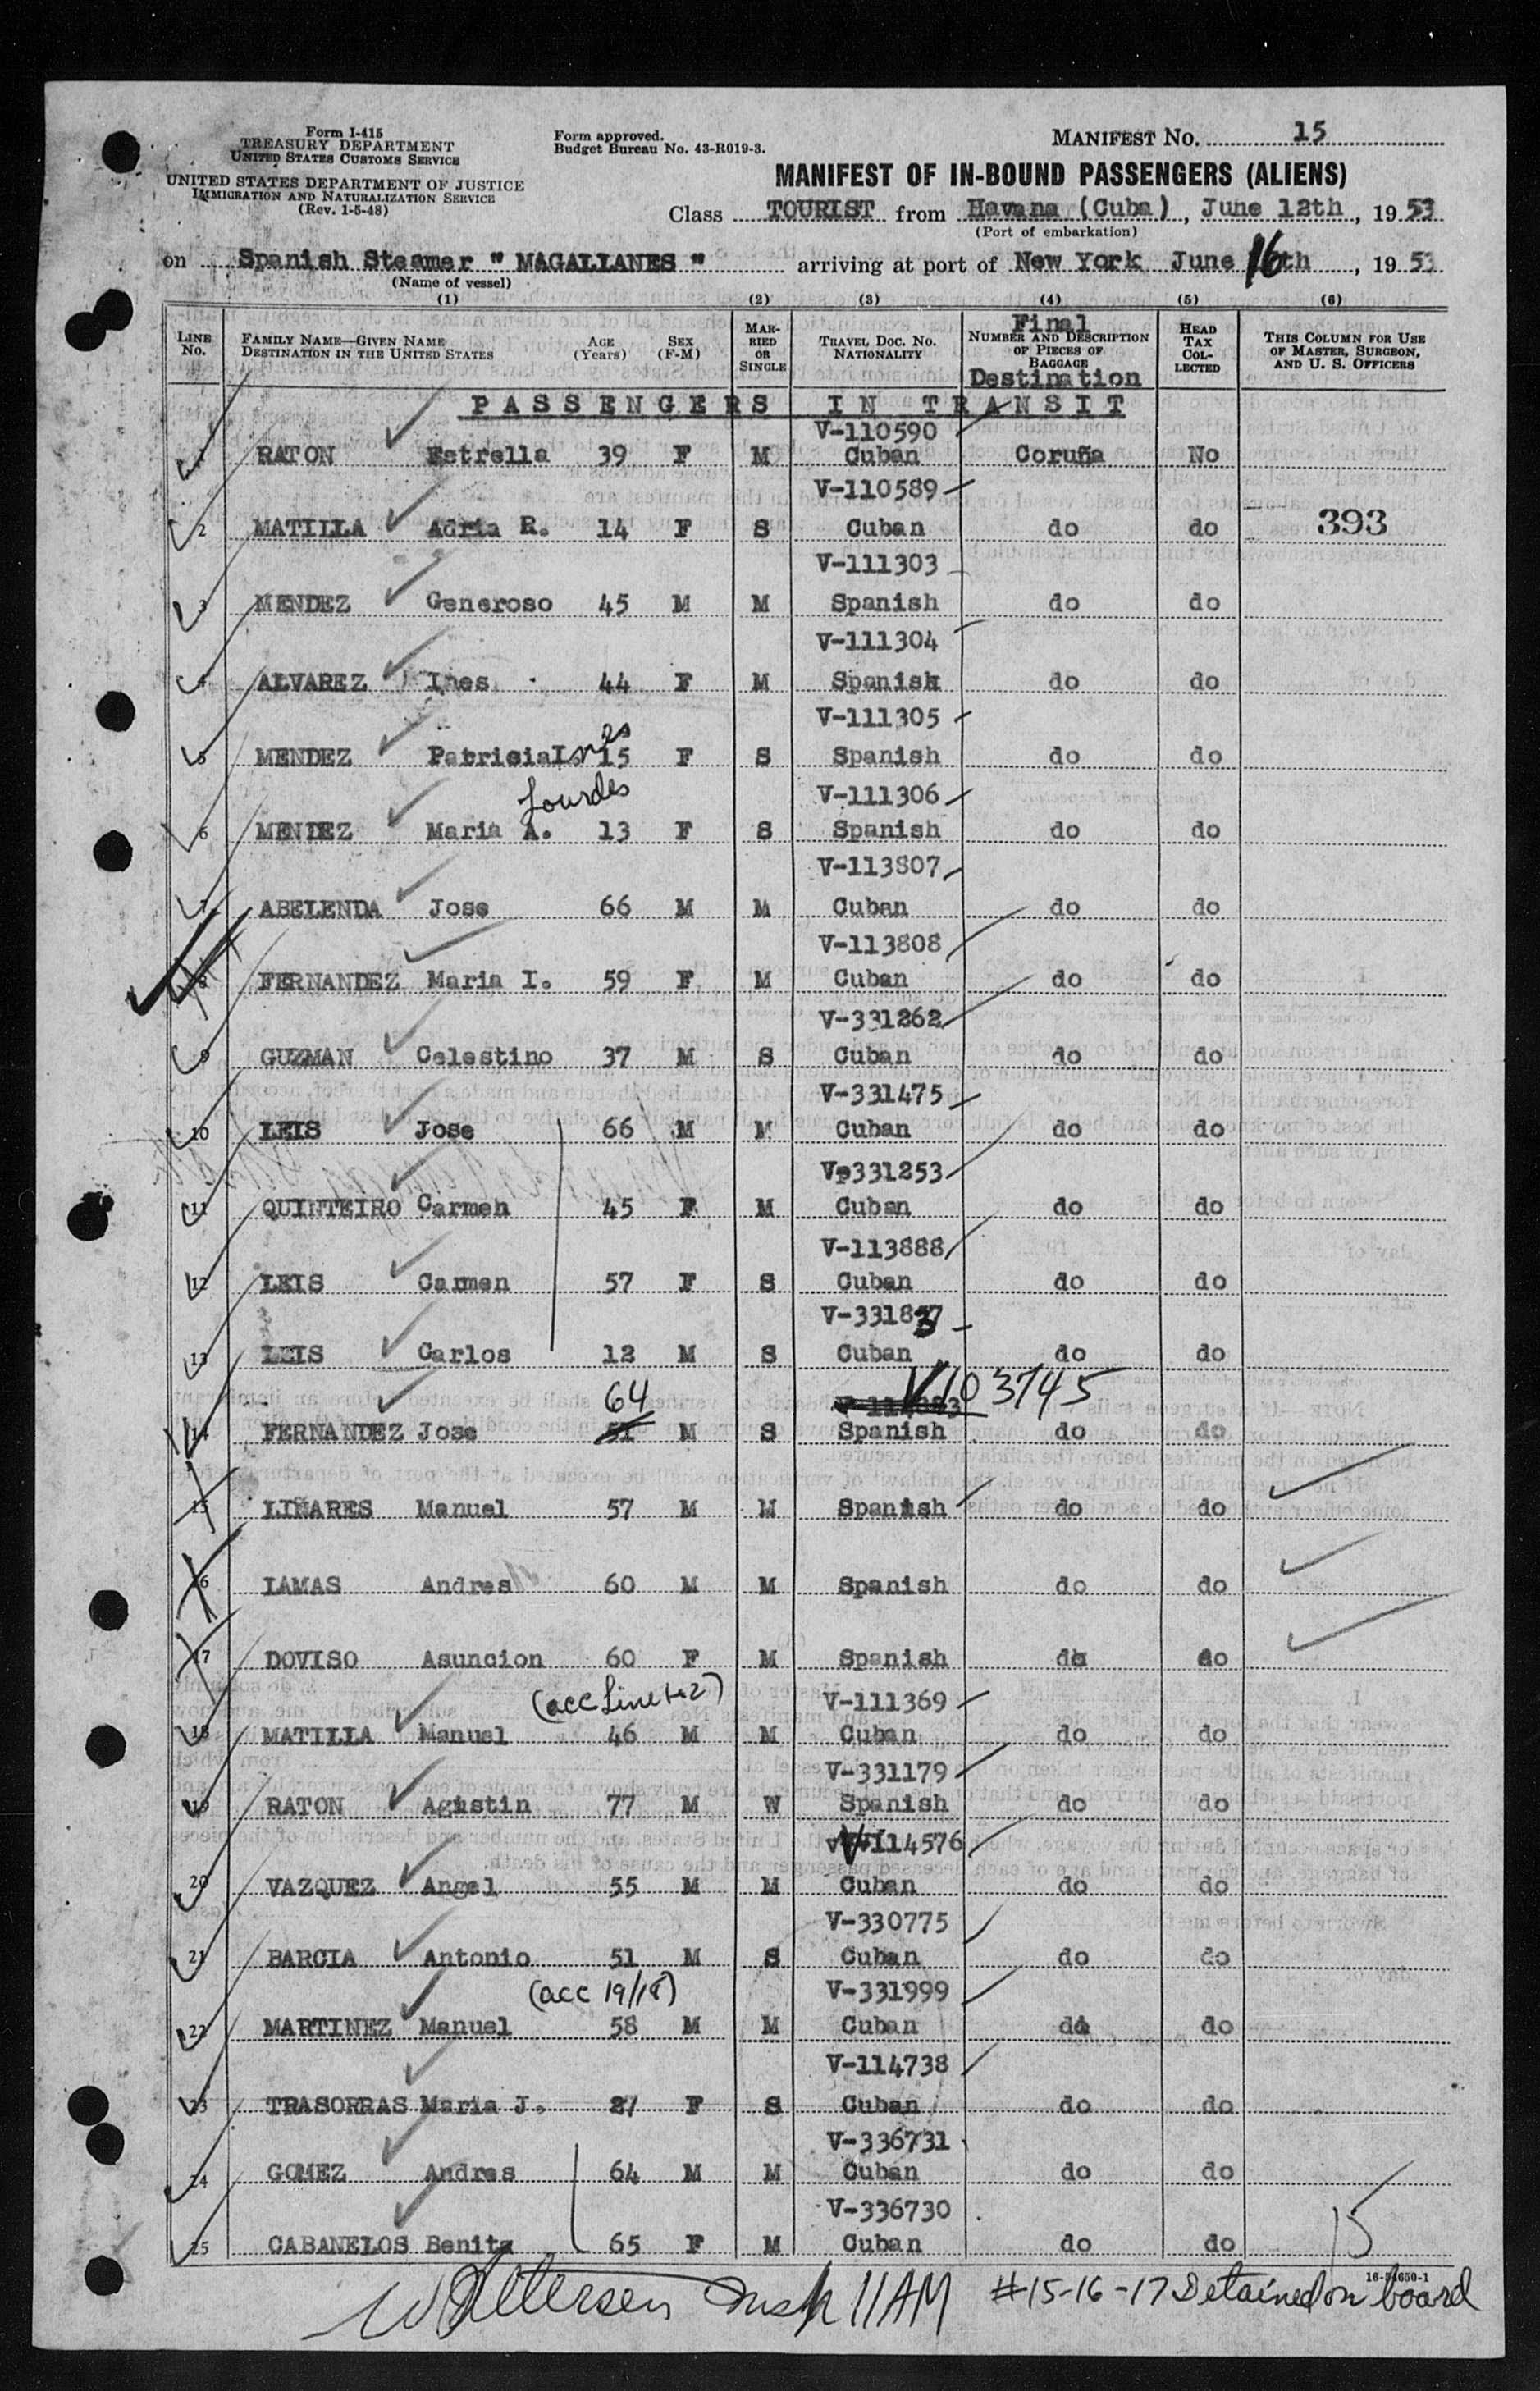 Form I-415
TREASURY DEPARTMENT
UNITED STATES CUSTOMS SERVICE
UNITED STATES DEPARTMENT OF JUSTICE
IMMIGRATION AND NATURALIZATION SERVICE
(Rev. 1-5-48)
Form approved.
Budget Bureau No. 43-R019-3.
MANIFEST No. 15
MANIFEST OF IN-BOUND PASSENGERS (ALIENS)
Class TOURIST from Havana (Cuba), June 12th, 1953
(Port of embarkation)
on Spanish Steamer " MAGALLANES " arriving at port of New York June 16th, 1953
(Name of vessel)
(1) (2) (3) (4) (5) (6)
LINE No. FAMILY NAME—GIVEN NAME DESTINATION IN THE UNITED STATES AGE (Years) SEX (F-M) MARRIED OR SINGLE TRAVEL DOC. NO. NATIONALITY Final NUMBER AND DESCRIPTION OF PIECES OF BAGGAGE Destination HEAD TAX COLLECTED THIS COLUMN FOR USE OF MASTER, SURGEON, AND U. S. OFFICERS
PASSENGERS IN TRANSIT
V-110590
1 RATON Estrella 39 F M Cuban Coruña No
V-110589
2 MATILLA Adria R. 14 F S Cuban do do 393
V-111303
3 MENDEZ Generoso 45 M M Spanish do do
V-111304
4 ALVAREZ Ines 44 F M Spanish do do
V-111305
5 MENDEZ Patricia Ines 15 F S Spanish do do
Lourdes V-111306
6 MENDEZ Maria A. 13 F S Spanish do do
V-113807
7 ABELENDA Jose 66 M M Cuban do do
V-113808
8 FERNANDEZ Maria I. 59 F M Cuban do do
V-331262
9 GUZMAN Celestino 37 M S Cuban do do
V-331475
10 LEIS Jose 66 M M Cuban do do
V-331253
11 QUINTEIRO Carmen 45 F M Cuban do do
V-113888
12 LEIS Carmen 57 F S Cuban do do
V-33183
13 LEIS Carlos 12 M S Cuban do do
64 V103745
14 FERNANDEZ Jose 51 M S Spanish do do
15 LIÑARES Manuel 57 M M Spanish do do
16 LAMAS Andres 60 M M Spanish do do
17 DOVISO Asuncion 60 F M Spanish do do
(acc Line 1+2) V-111369
18 MATILLA Manuel 46 M M Cuban do do
V-331179
19 RATON Agustin 77 M W Spanish do do
V-114576
20 VAZQUEZ Angel 55 M M Cuban do do
V-330775
21 BARCIA Antonio 51 M S Cuban do do
(acc 19/18) V-331999
22 MARTINEZ Manuel 58 M M Cuban do do
V-114738
23 TRASORRAS Maria J. 27 F S Cuban do do
V-336731
24 GOMEZ Andres 64 M M Cuban do do
V-336730
25 CABANELOS Benita 65 F M Cuban do do 15
16-54650-1
11 AM #15-16-17 Detained on board